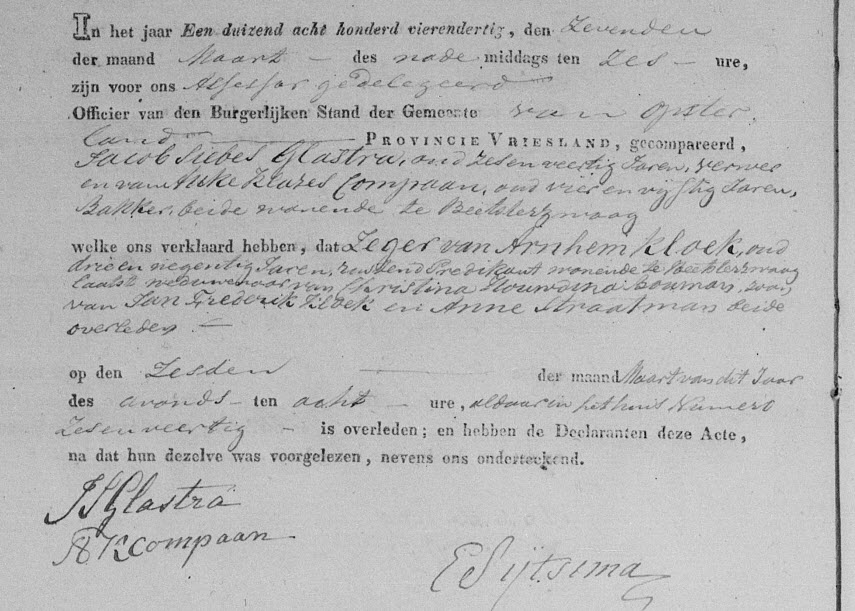 In het jaar Een duizend acht honderd vierendertig, den Zevenden
der maand Maart - des nade middags ten Zes - ure,
zijn voor ons Assessor gedelegeerd
Officier van den Burgerlijken Stand der Gemeente van Opster
land PROVINCIE VRIESLAND, gecompareerd,
Jacob Siebes Glastra, oud zesenveertig Jaren, verwer
en van Auke Klazes Compaan, oud vier en vijftig Jaren,
Bakker, beide wonende te Beetsterzwaag
welke ons verklaard hebben, dat Zeger van Arnhem Kloek, oud
drieen negentig Jaren, rustend Predikant wonende te Beetsterzwaag
laatst weduwenaar van Christina Bouman, zoon
van Jan Frederik Kloek en Anne Straatman beide
overleden -
op den Zesden der maand Maart van dit Jaar
des avonds - ten acht - ure, aldaar in het huis Numero
Zesenveertig - is overleden; en hebben de Declaranten deze Acte,
na dat hun dezelve was voorgelezen, nevens ons onderteekend.
JS Glastra
AK Compaan
E Sijtsema